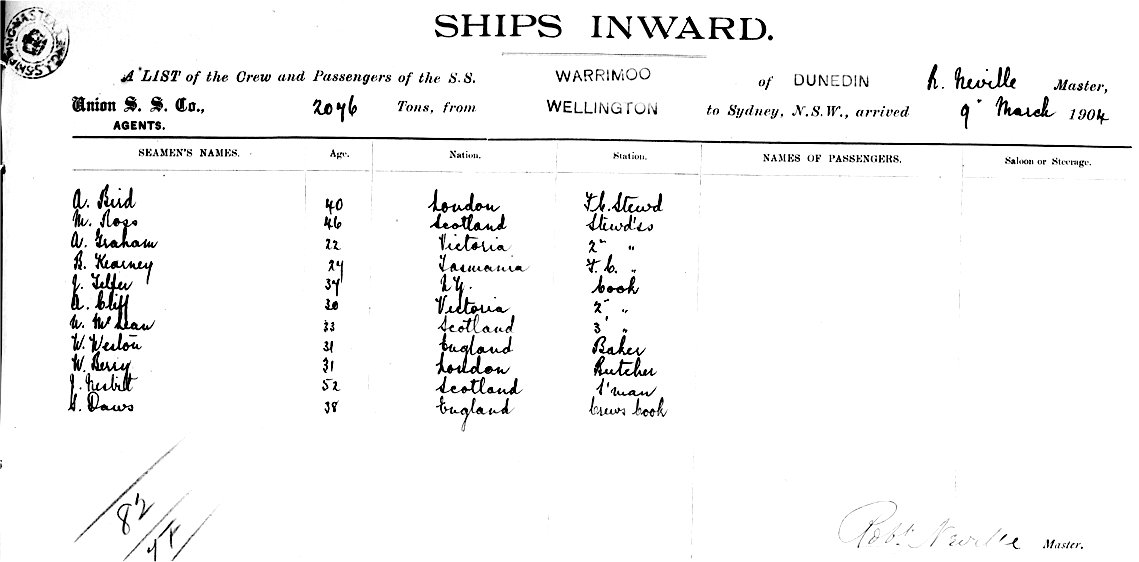 SHIPS INWARD.
A LIST of the Crew and Passengers of the S.S. WARRIMOO of DUNEDIN R. Neville Master,
Union S. S. Co., 2076 Tons, from WELLINGTON to Sydney, N.S.W., arrived 9" March 1904
AGENTS.
SEAMEN'S NAMES. Age. Nation. Station. NAMES OF PASSENGERS. Saloon or Steerage.
A. Bird 40 London F.C. Stewd
M. Ross 46 Scotland Stewd'ss
A. Graham 22 Victoria 2" "
B. Kearney 24 Tasmania F.C. "
J. Telfer 37 N.Z. Cook
A. Cliff 30 Victoria 2" "
N. McLean 33 Scotland 3' "
W. Weston 31 England Baker
W. Berry 31 London Butcher
J. Nesbit 52 Scotland S'man
G. Daws 38 England Crews Cook
82
Robt Neville Master.